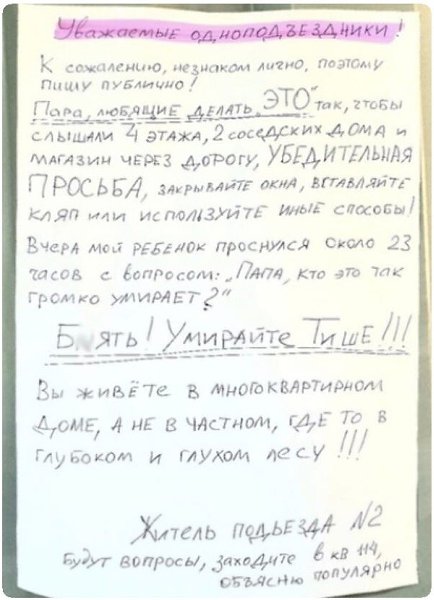 Уважаемые одноподъездники!
К сожалению, незнаком лично, поэтому
пишу публично!
Пара, любящие делать „ЭТО" так, чтобы
слышали 4 этажа, 2 соседских дома и
магазин через дорогу, УБЕДИТЕЛЬНАЯ
ПРОСЬБА, закрывайте окна, вставляйте
кляп или используйте иные способы!
Вчера мой ребенок проснулся около 23
часов с вопросом: „Папа, кто это так
громко умирает?"
Б ять! Умирайте Тише!!!
Вы живёте в многоквартирном
доме, а не в частном, где то в
глубоком и глухом лесу!!!
Житель подьезда №2
Будут вопросы, заходите в кв 114,
объясню популярно